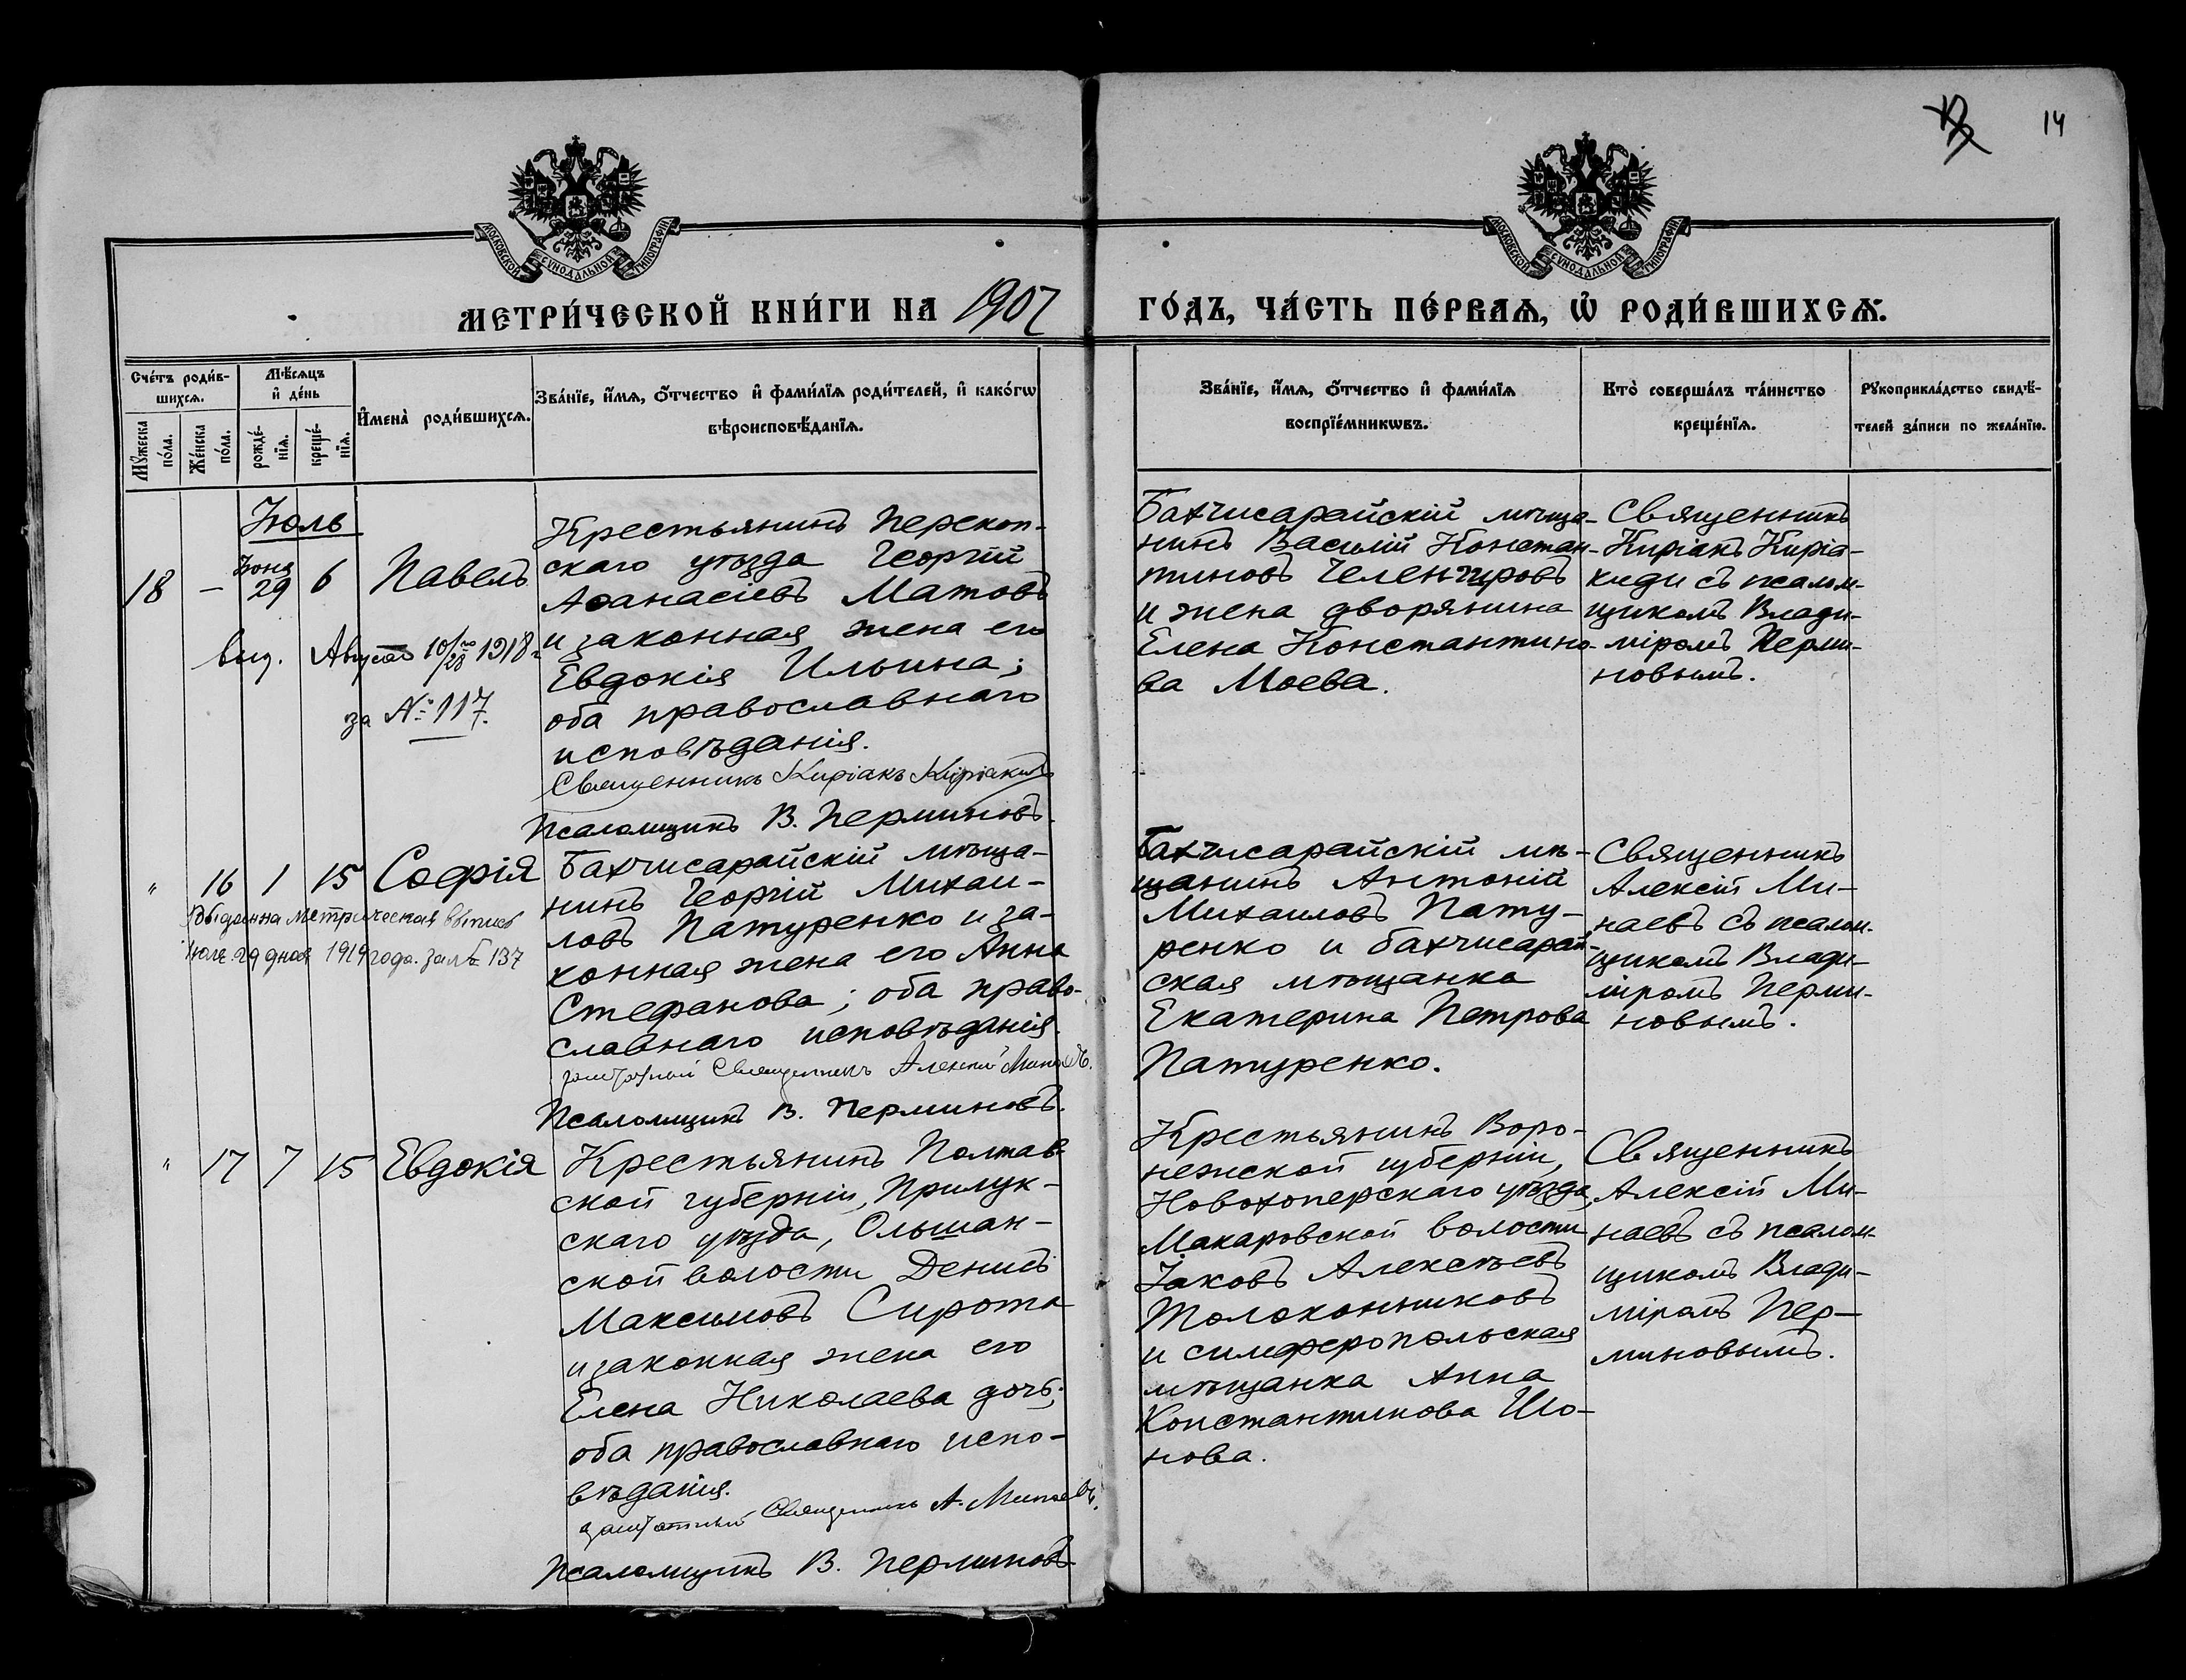 14
МОСКОВСКОЙ СѴНОДАЛЬНОЙ ТИПОГРАФІИ
МОСКОВСКОЙ СѴНОДАЛЬНОЙ ТИПОГРАФІИ
МЕТРИ́ЧЕСКОЙ КНИ́ГИ НА 1907
ГО́ДЪ, ЧА́СТЬ ПЕ́РВАѦ, Ѡ҆ РОДИ́ВШИХСѦ.
Сче́тъ роди́в-
шихсѧ.
Мѣ́сѧцъ
и҆ де́нь
Мꙋ́жеска
по́ла.
Же́нска
по́ла.
рожде́-
нїѧ.
креще́-
нїѧ.
И҆мена̀ роди́вшихсѧ.
Зва́нїе, и҆́мѧ, ѻ҆́тчество и҆ фами́лїѧ роди́телей, и҆ како́гѡ
вѣроисповѣ́данїѧ.
Зва́нїе, и҆́мѧ, ѻ҆́тчество и҆ фами́лїѧ
воспрїе́мникѡвъ.
Кто̀ соверша́лъ та́инство
креще́нїѧ.
Рꙋкоприкла́дство свидѣ́-
телей за́писи по жела́нїю.
Іюль
18 — Іюня 29 6 Павелъ
выд. Августа 10/28 1918 г.
за № 117.
Крестьянинъ Перекоп-
скаго уѣзда Георгій
Аѳанасіевъ Матовъ
и законная жена его
Евдокія Ильина;
оба православнаго
исповѣданія.
Священникъ Киріакъ Киріакиди
Псаломщикъ В. Перминовъ.
Бахчисарайскій мѣща-
нинъ Василій Констан-
тиновъ Челенгировъ
и жена дворянина
Елена Константино-
ва Моева.
Священникъ
Киріакъ Киріа-
киди съ псалом-
щикомъ Влади-
міромъ Перми-
новымъ.
" 16 1 15 Софія
Выданна метрическая выпись
Іюля 29 дня 1919 года. за № 137
Бахчисарайскій мѣща-
нинъ Георгій Михаи-
ловъ Патуренко и за-
конная жена его Анна
Стефанова; оба право-
славнаго исповѣданія.
заштатный Священникъ Алексій Минаевъ.
Псаломщикъ В. Перминовъ.
Бахчисарайскій мѣ-
щанинъ Антоній
Михаиловъ Пату-
ренко и бахчисарай-
ская мѣщанка
Екатерина Петрова
Патуренко.
Священникъ
Алексій Ми-
наевъ съ псалом-
щикомъ Влади-
міромъ Перми-
новымъ.
" 17 7 15 Евдокія
Крестьянинъ Полтав-
ской губерніи, Прилук-
скаго уѣзда, Ольшан-
ской волости Денисъ
Максимовъ Сирота
и законная жена его
Елена Николаева дочь;
оба православнаго испо-
вѣданія.
заштатный Священникъ А. Минаевъ.
Псаломщикъ В. Перминовъ
Крестьянинъ Воро-
нежской губерніи,
Новохоперскаго уѣзда,
Макаровской волости
Іаковъ Алексѣевъ
Толоконниковъ
и симферопольская
мѣщанка Анна
Константинова Шо-
нова.
Священникъ
Алексій Ми-
наевъ съ псалом-
щикомъ Влади-
міромъ Пер-
миновымъ.